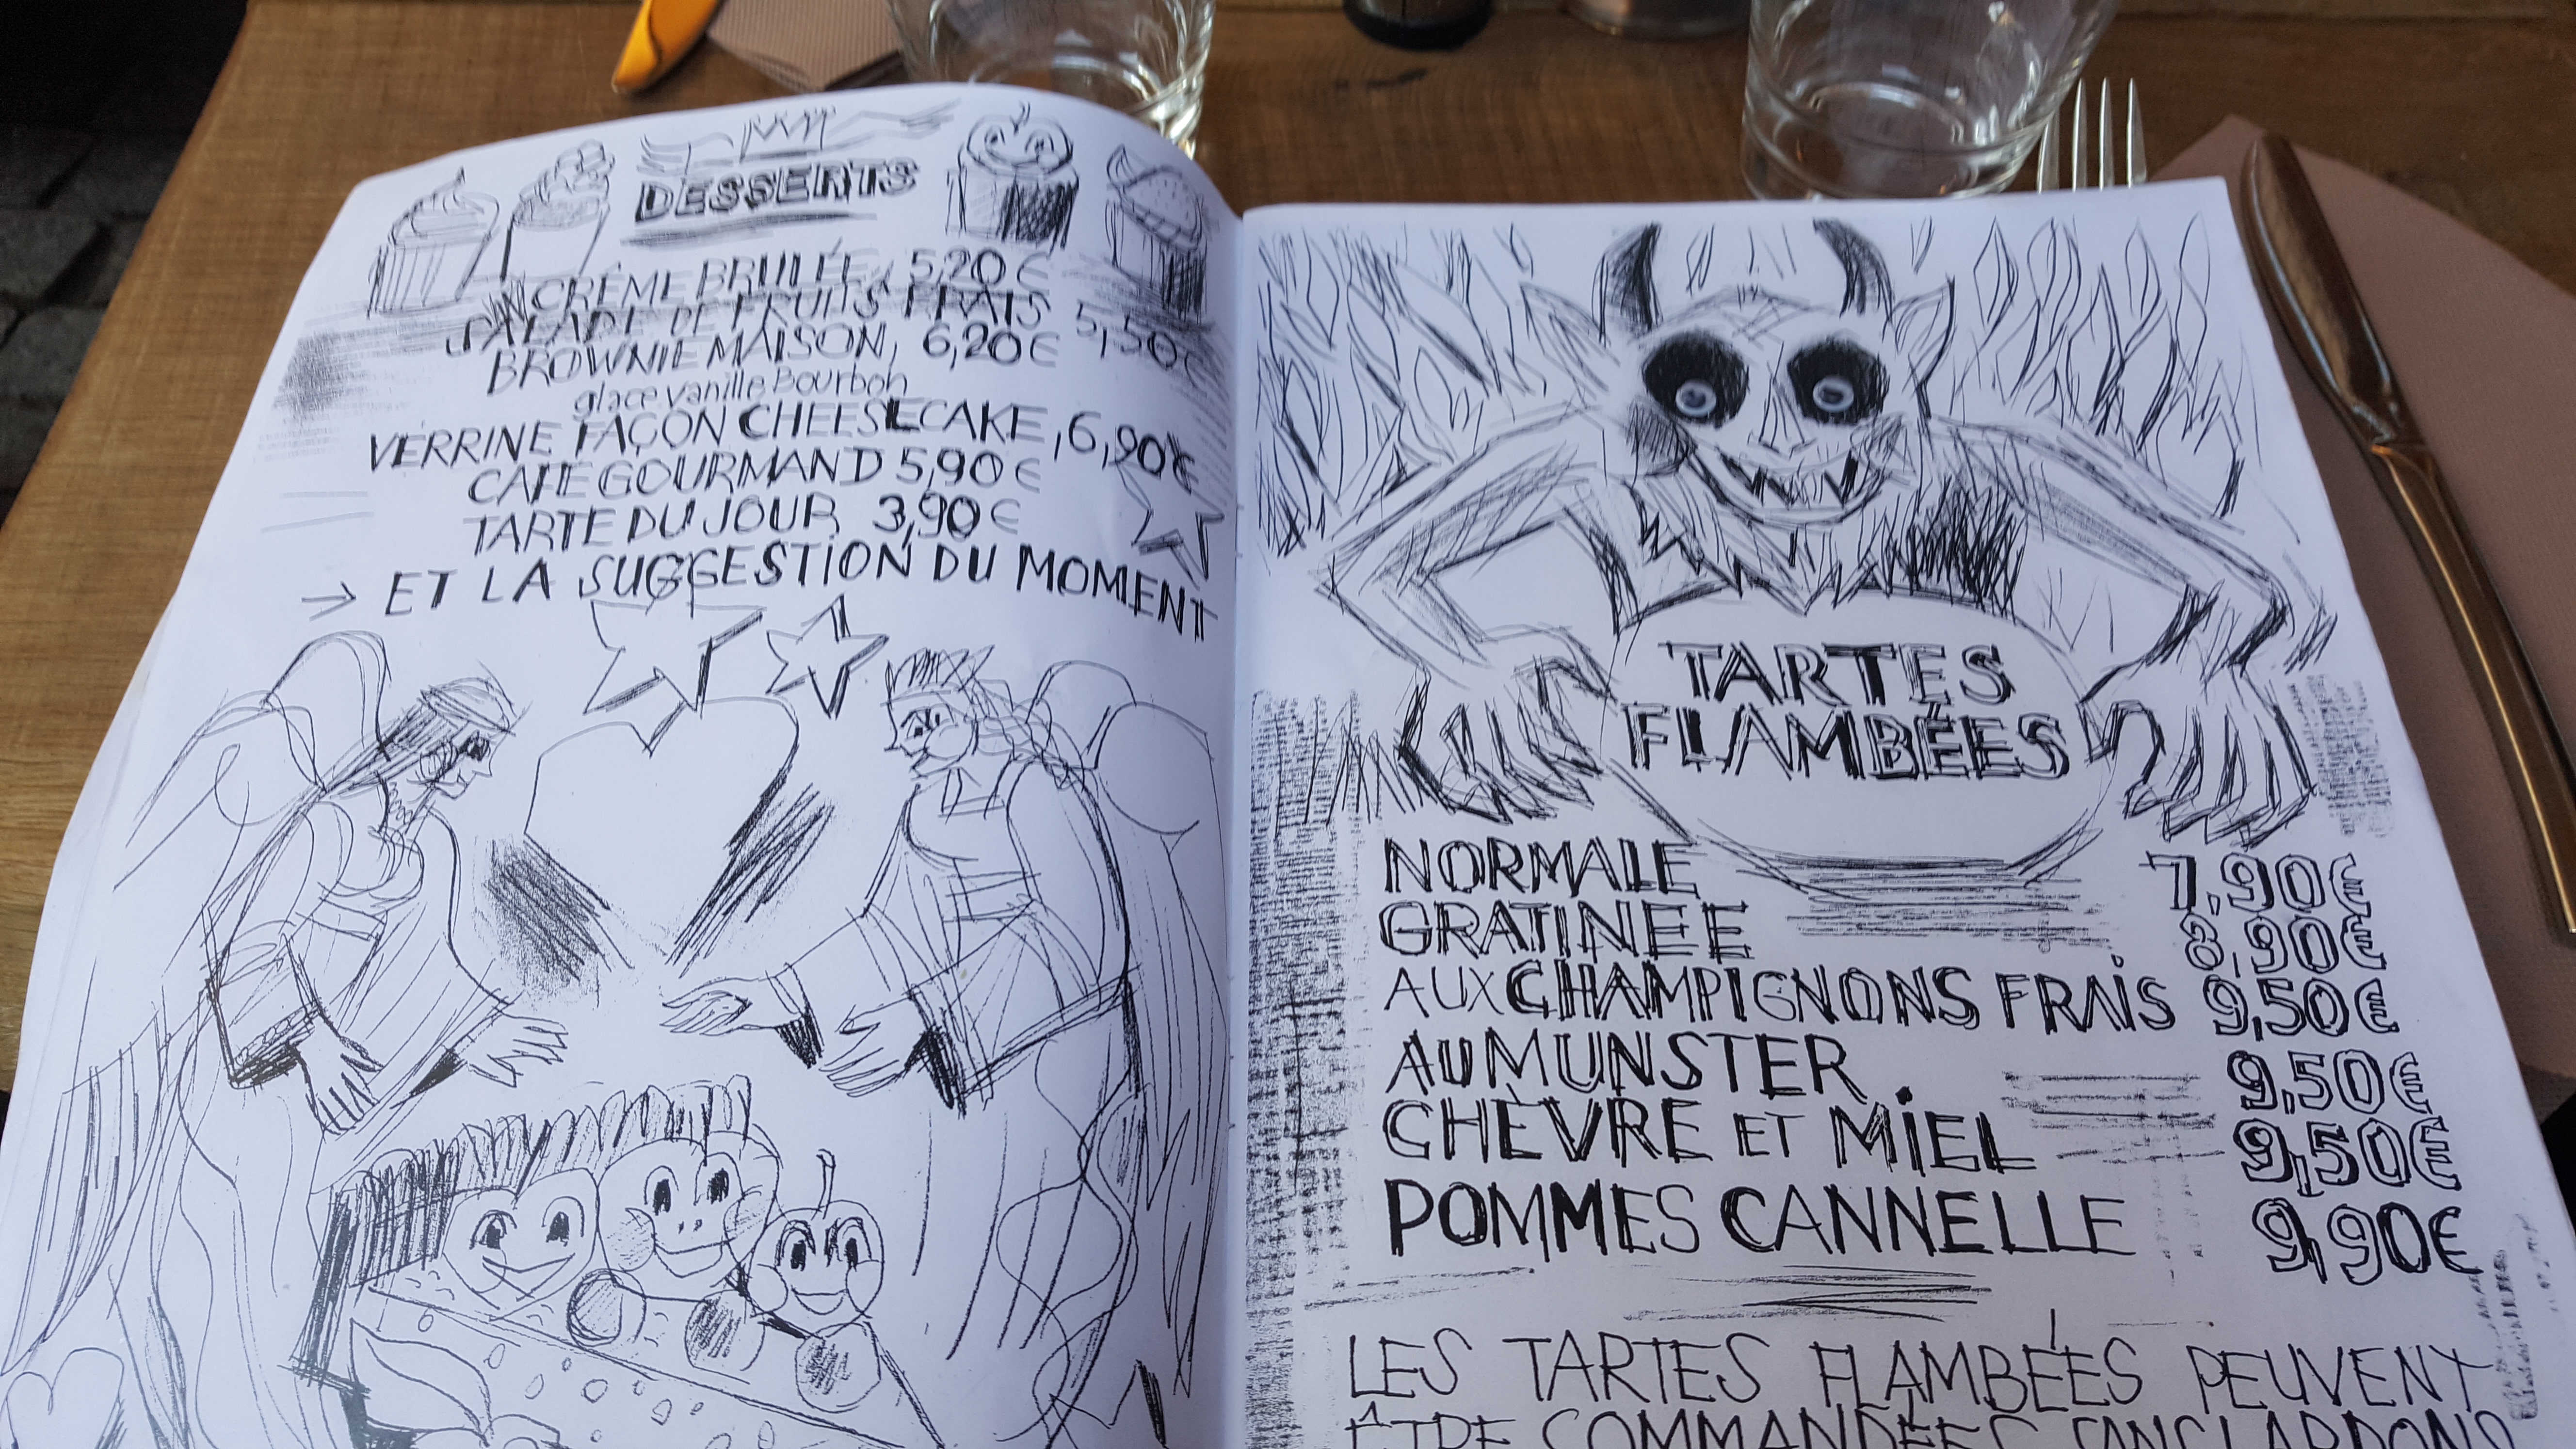 DESSERTS
CRÈME BRULÉE, 5,20€
SALADE DE FRUITS FRAIS 5,50€
BROWNIE MAISON, 6,20€
glace vanille Bourbon
VERRINE FAÇON CHEESECAKE, 6,90€
CAFE GOURMAND 5,90€
TARTE DU JOUR, 3,90€
→ ET LA SUGGESTION DU MOMENT
TARTES
FLAMBÉES
NORMALE 7,90€
GRATINEE 8,90€
AUX CHAMPIGNONS FRAIS 9,50€
AU MUNSTER 9,50€
CHÈVRE ET MIEL 9,50€
POMMES CANNELLE 9,90€
LES TARTES FLAMBÉES PEUVENT
ÊTRE COMMANDÉES SANS LARDONS